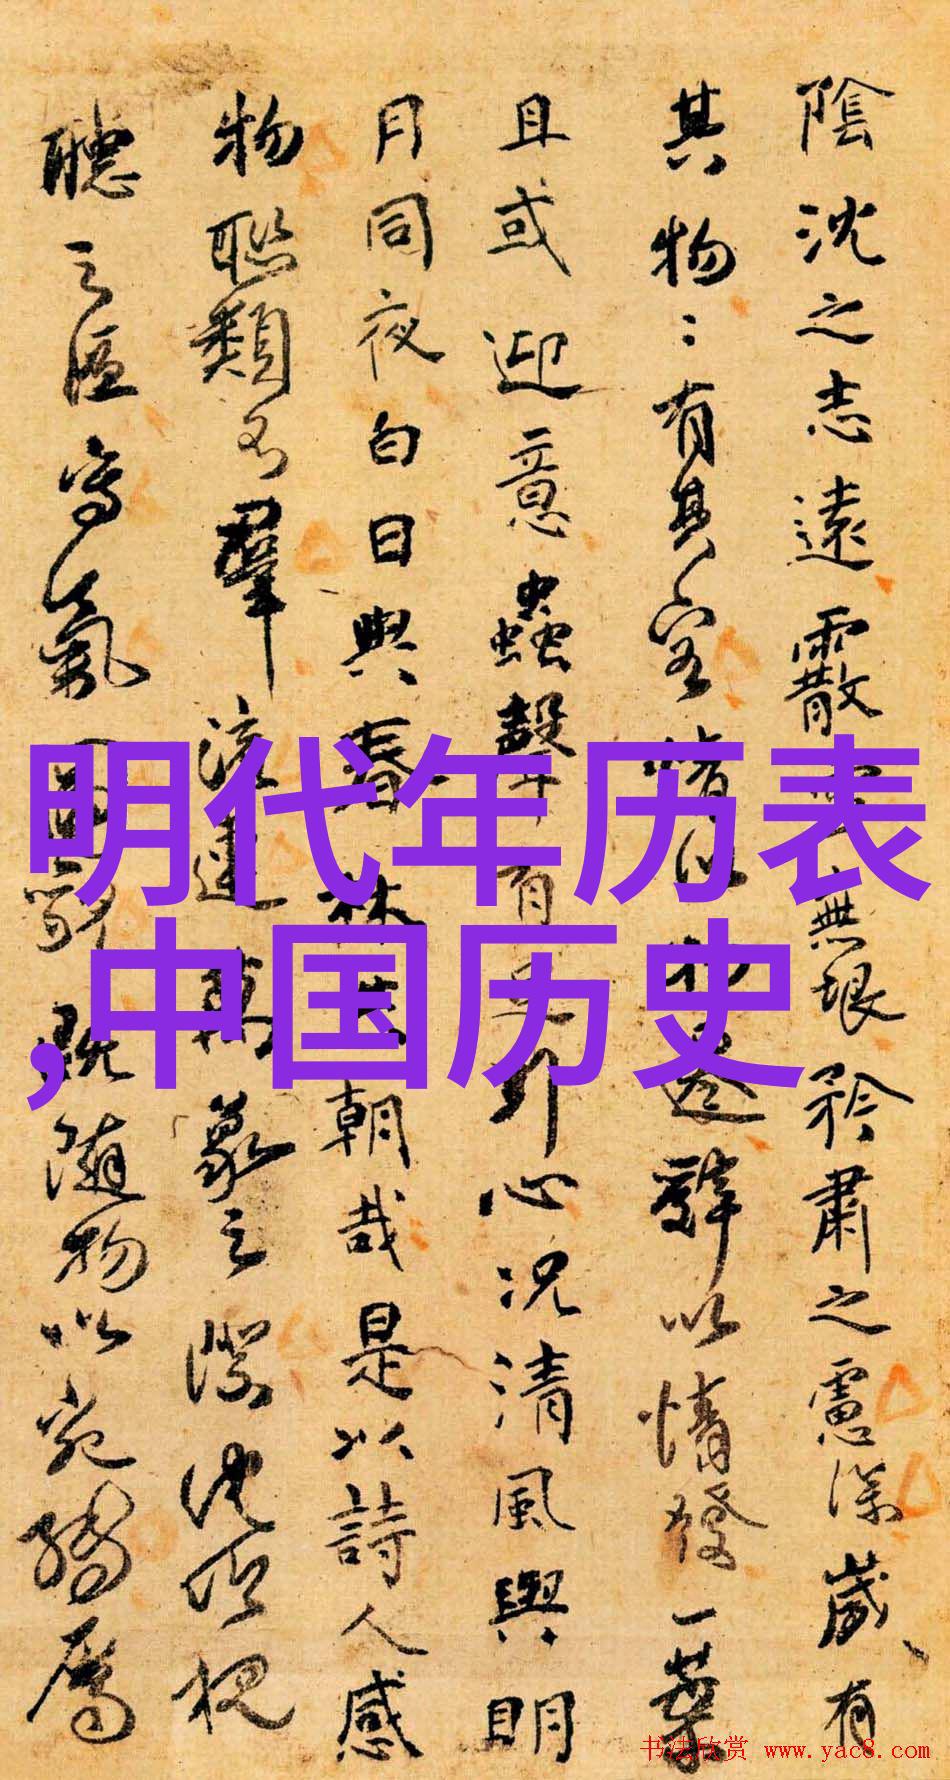 陰沈之志遠霰無垠矜肅之慮深歲有
其物〻有其容情以物遷辭以情發一葉
且或迎意蟲聲有引心況清風與明
月同夜白日與春林共朝哉是以詩人感
物聯類羣流連萬象之際沈吟視
聽之區寫氣圖既隨物以宛轉屬
明代年历表
,中国历史
书法欣赏 www.yac8.com